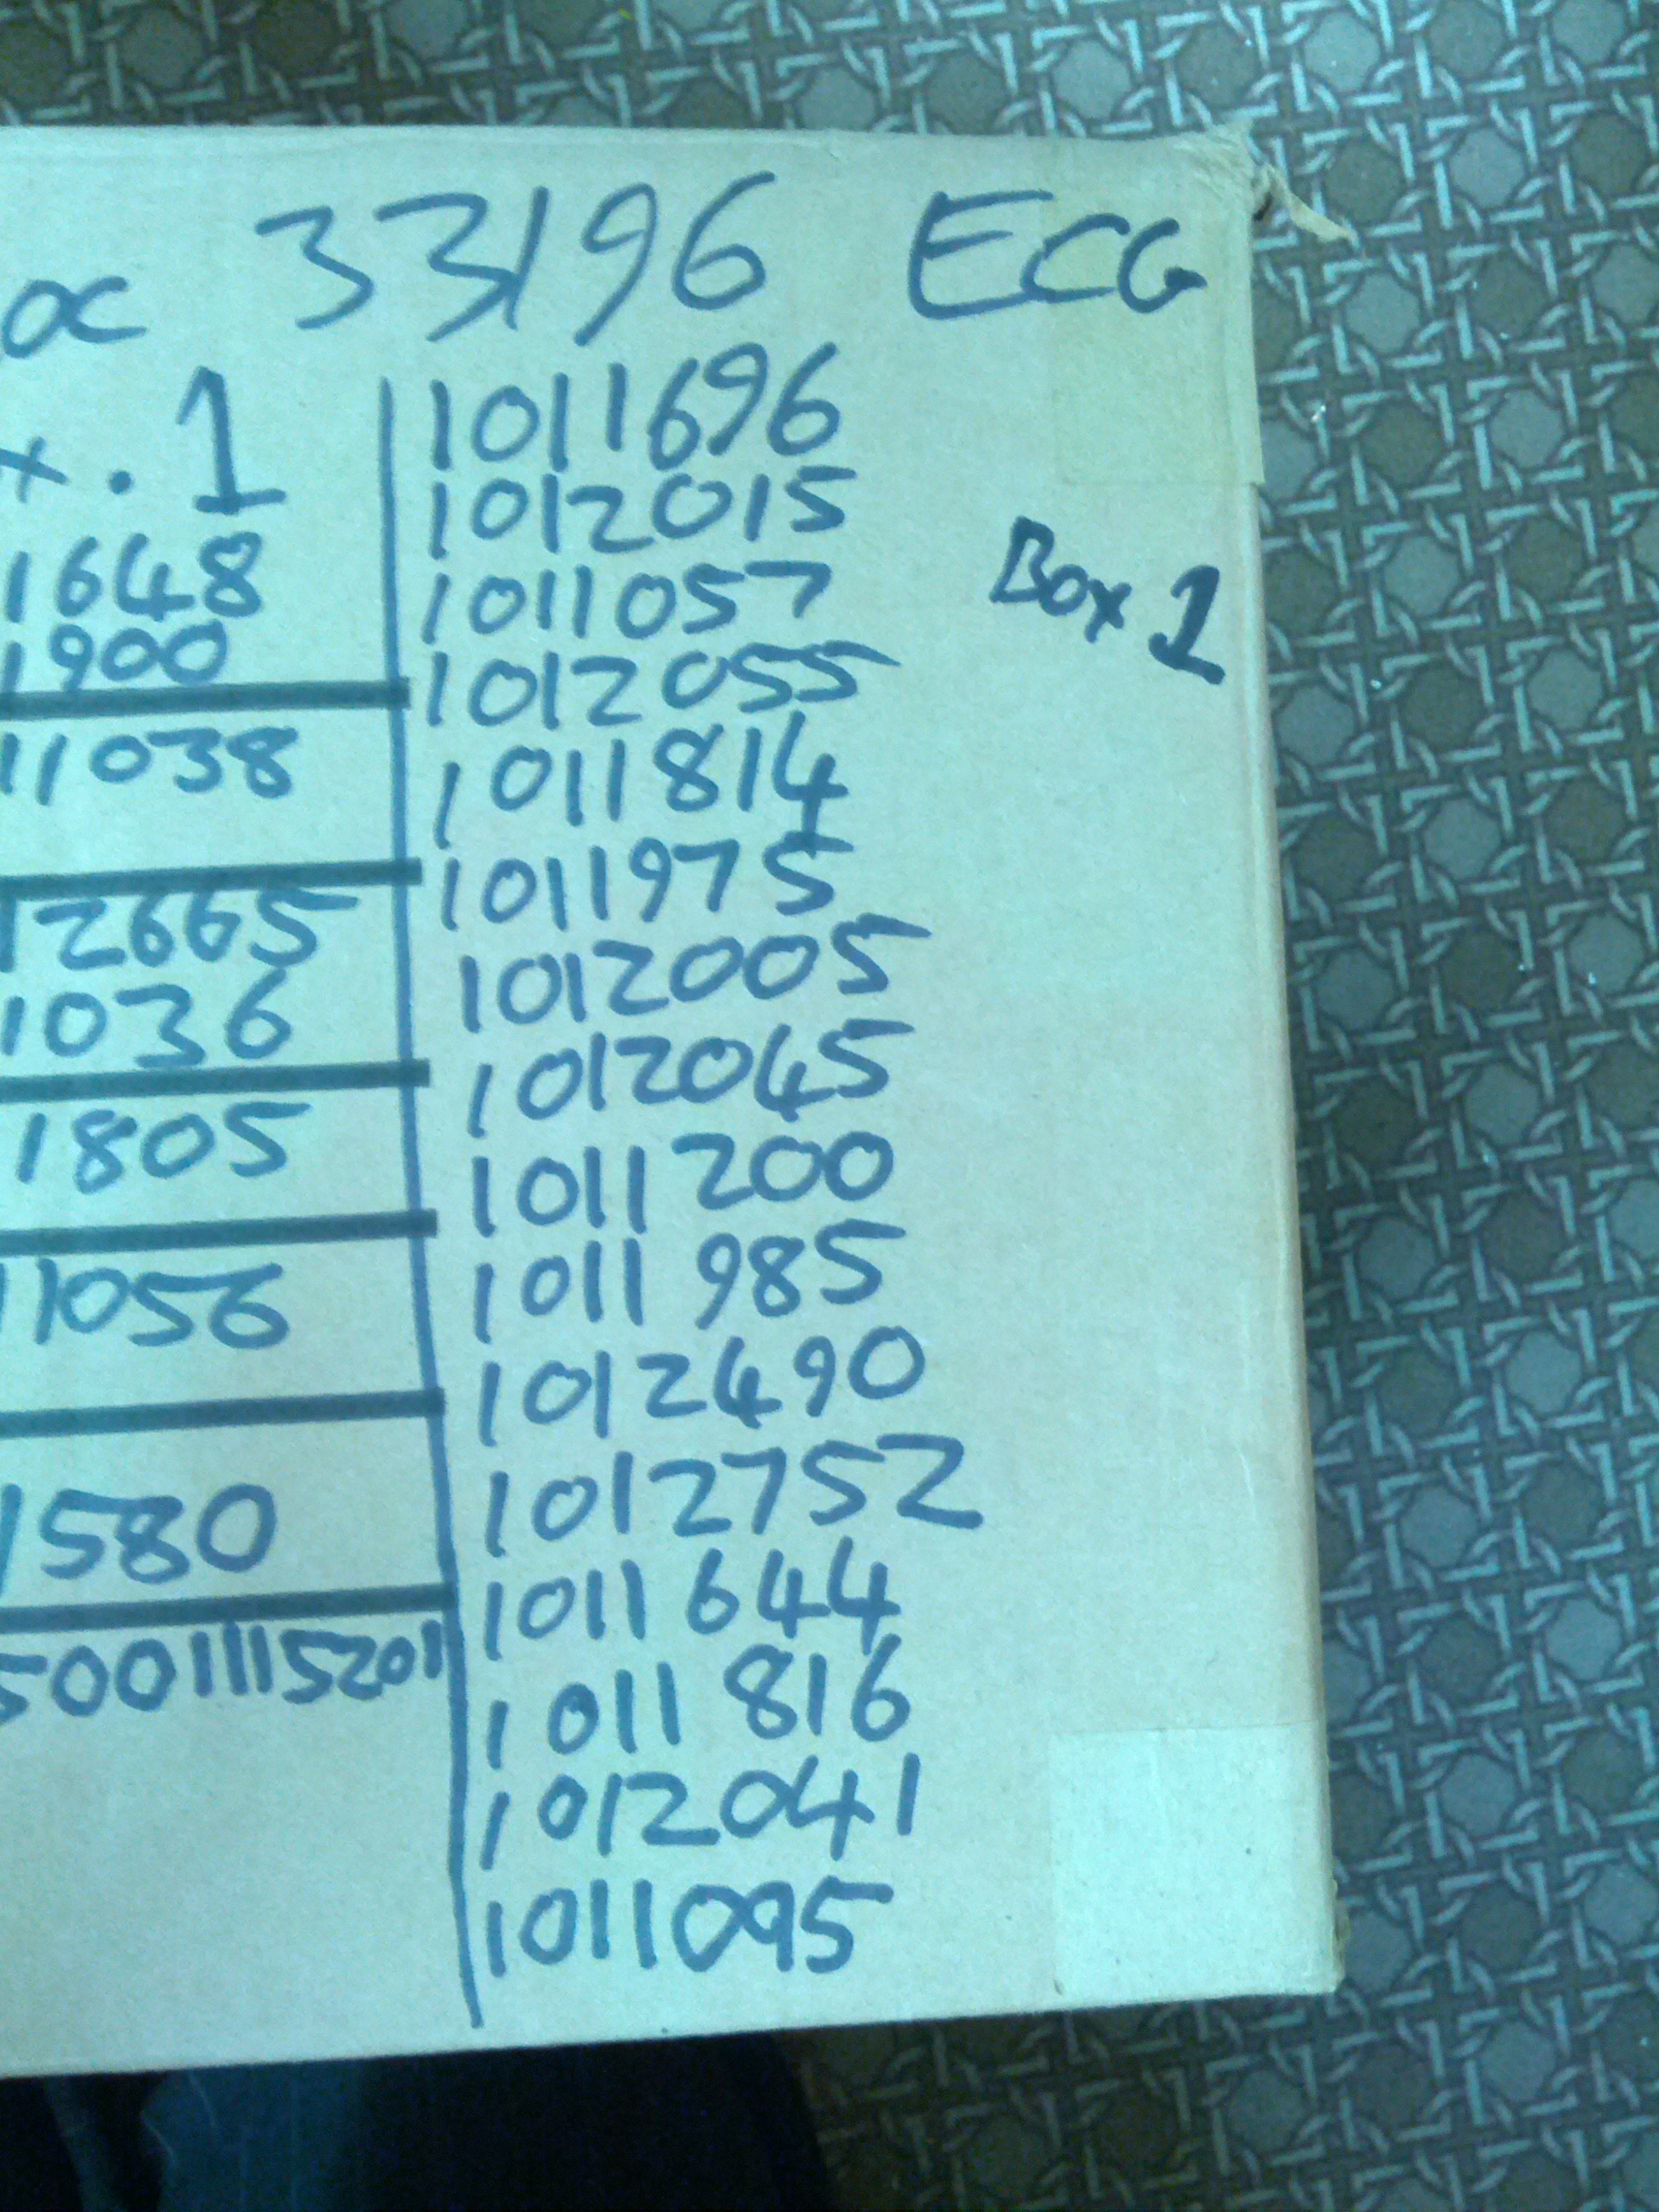 oc 33196 ECG
x. 1
1648
1900
11038
12665
1036
1805
11056
1580
5001115201
1011696
1012015
1011057
1012055
1011814
1011975
1012005
1012045
1011200
1011985
1012490
1012752
1011644
1011816
1012041
1011095
Box 1